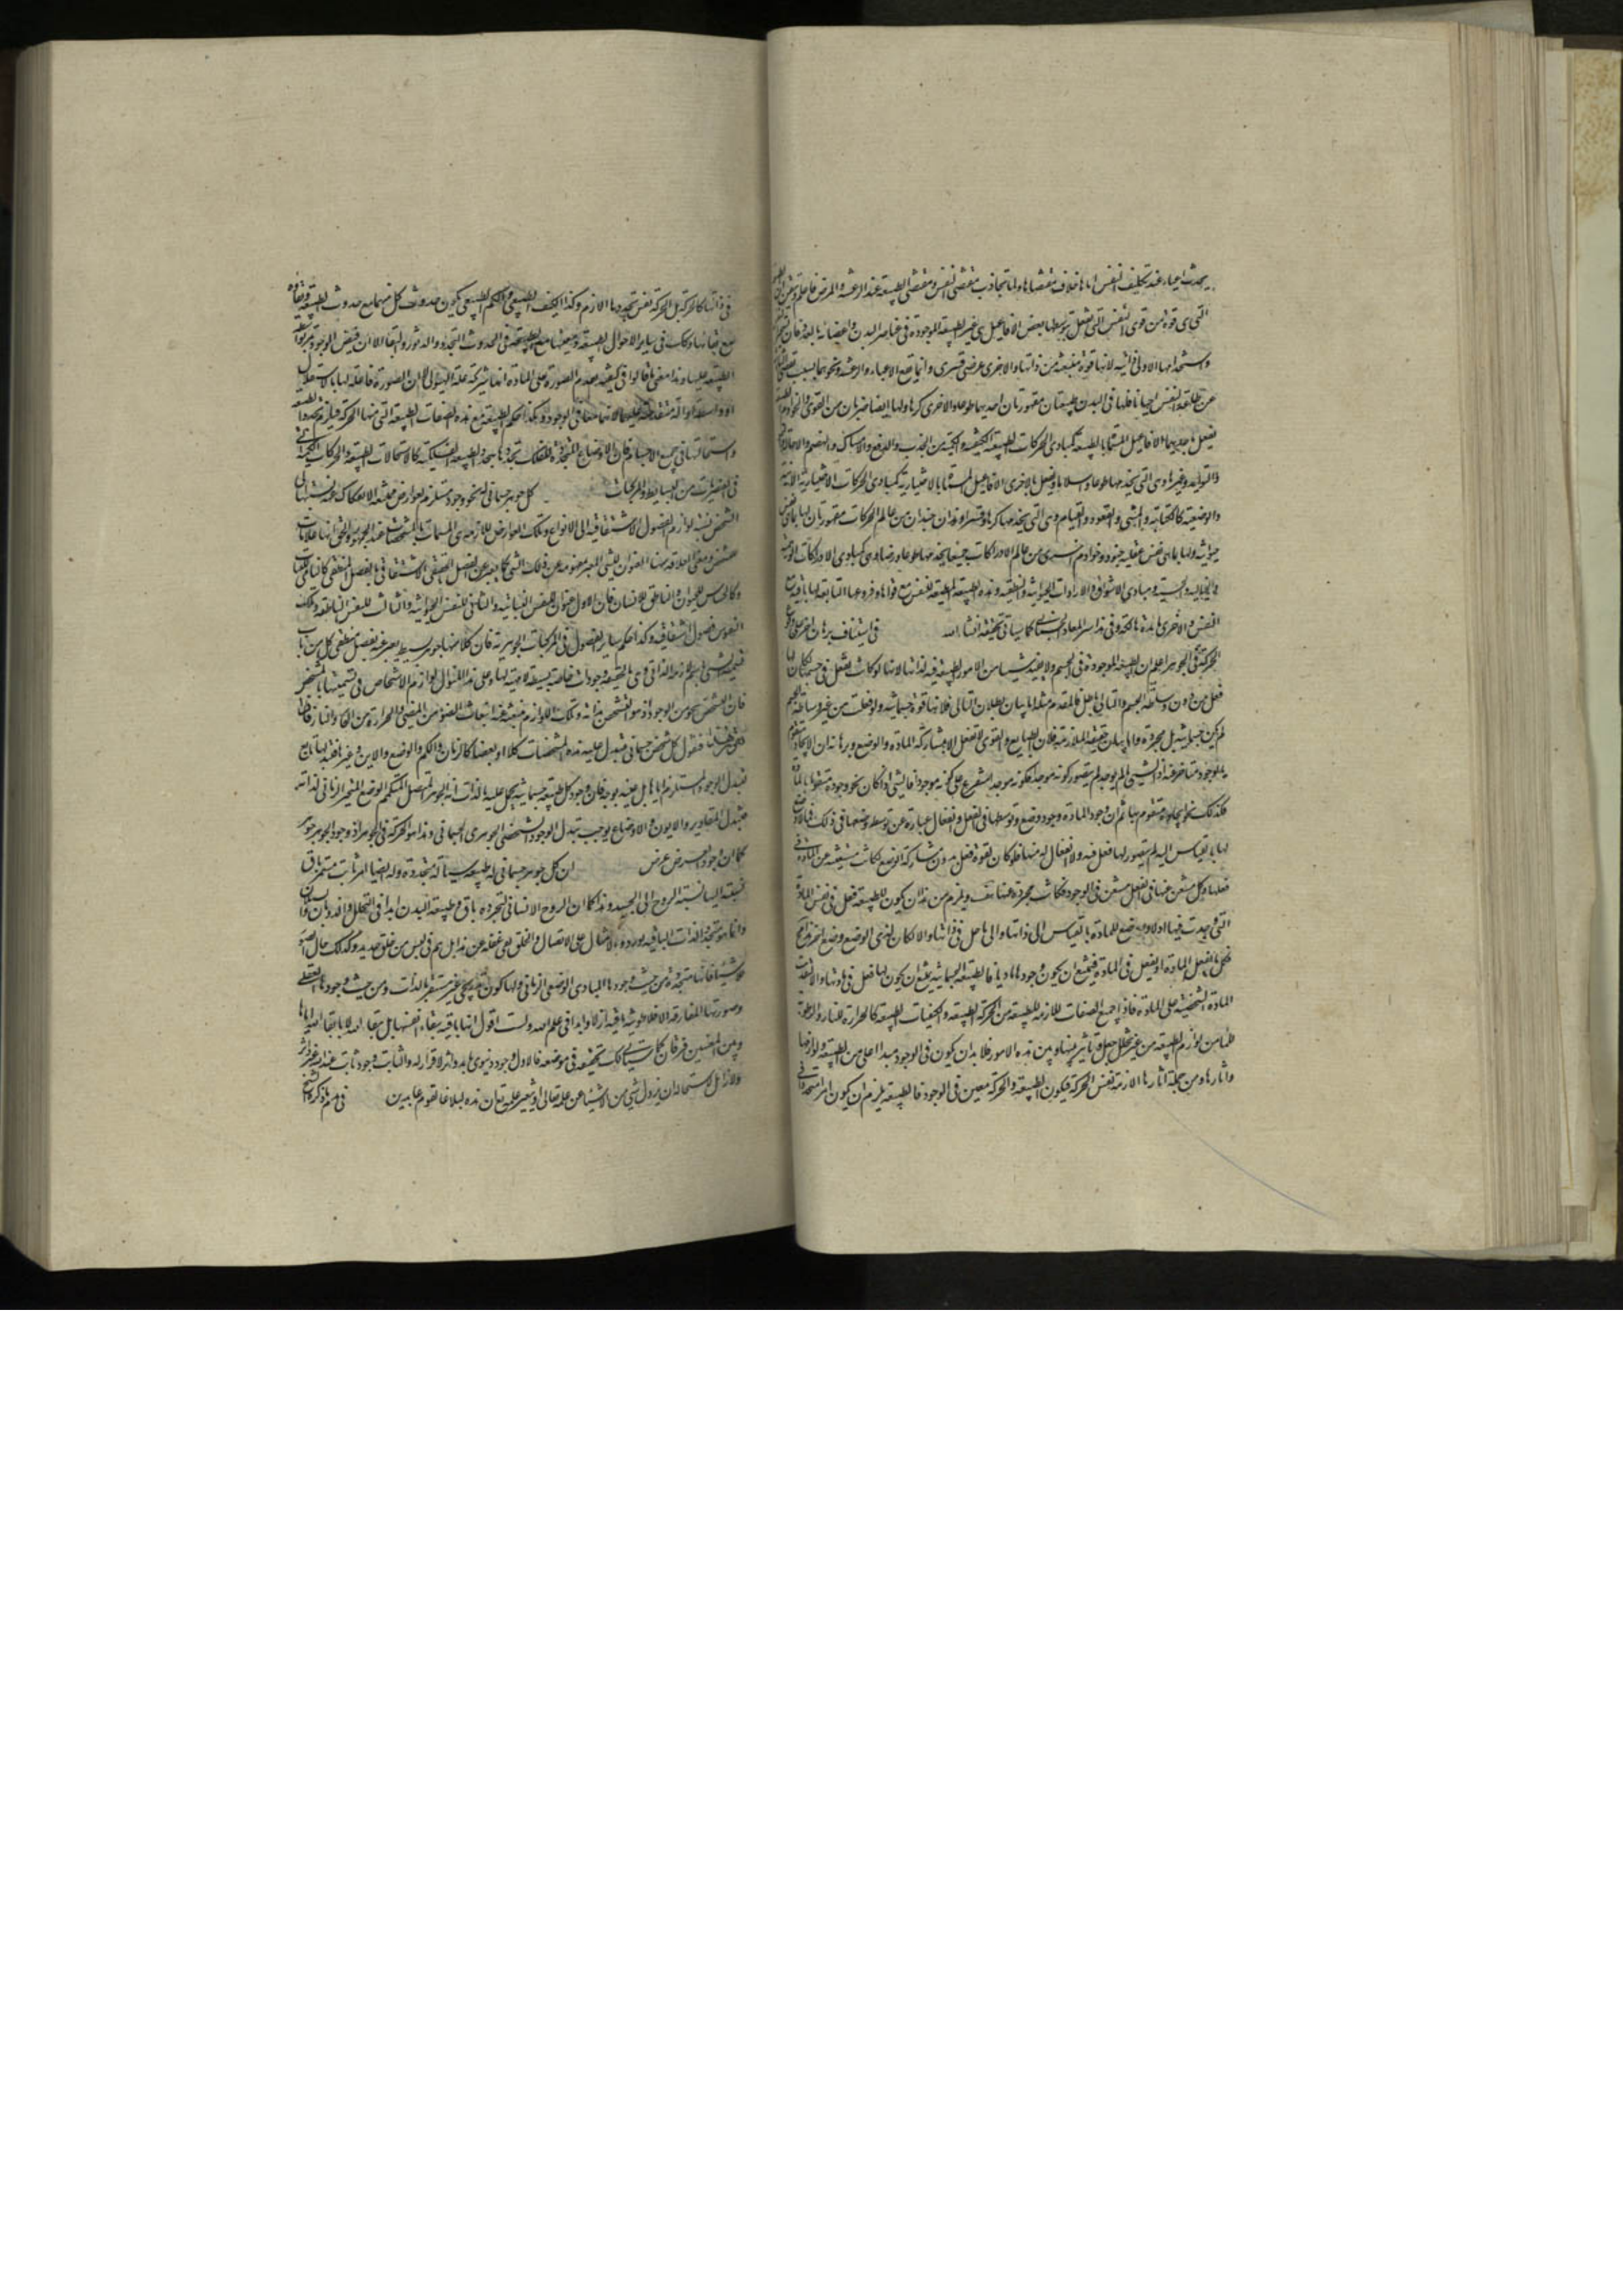 يحدث اعياء عند تكليف النفس اياها خلاف مقتضاها ولما تجاذب مقتضى النفس ومقتضى الطبيعة عند الرعشة والمرض فاعلم وتيقن ان
التى هى قوة من قوى النفس التى تفعل بتوسطها بعض الافاعيل هى غير الطبيعة الموجودة فى عناصر البدن واعضائه بالعدد فان
واستخدامها الاولى ذاتية لانها قوة منبعثة من ذاتها والاخرى عرضى قسرى وانما تقع الاعياء والرعشة ونحوهما بسبب
عن طاعة النفس احيانا فلها فى البدن طبيعتان مقهورتان احديهما طوعا والاخرى كرها ولها ايضا ضربان من القوى
يفعل باحديهما الافاعيل المسماة بالطبيعية كمبادى الحركات الطبيعية الكيفية والكمية من الجذب والدفع والامساك والهضم والاحالة
والتوليد وغيرها وهى التى يخدمها طوعا واسلاما ويفعل بالاخرى الافاعيل المسماة بالاختيارية كمبادى الحركات الاختيارية الاينية
والوضعية كالكتابة والمشى والقعود والقيام وهى التى يخدمها كرها وقسرا وهذان جندان من عالم الحركات مقهوران لها بما هى نفس
حيوانية ولها بما هى نفس عقلية جنود وخوادم اخرى من عالم الادراكات جميعا يخدمها طوعا ورضا وهى كمبادى الادراكات الوهمية
والخيالية والحسية ومبادى الاشواق والارادات الحيوانية والنطقية وهذه الطبيعة المطيعة للنفس مع قواها وفروعها التابعة لها باقية مع
النفس والاخرى بائدة هالكة وفى هذا سر المعاد الجسمانى كما سياتى تحقيقه انشاء الله فى استيناف برهان اخر على وقوع
الحركة فى الجوهر اعلم ان الطبيعة الموجودة فى الجسم ولا يفيد شيئا من الامور الطبيعية فيه لذاتها لانها لو كانت تفعل فى جسمها لكان لها
فعل من دون وساطة الجسم والتالى باطل فالمقدم مثله اما بيان بطلان التالى فلانها قوة جسمانية ولو فعلت من غير وساطة الجسم
لم يكن جسمانية بل مجردة واما بيان حقيقة الملازمة فلان الطبايع والقوى لا تفعل الا بمشاركة المادة والوضع وبرهانه ان الايجاد متقوم
بالوجود متاخر عنه اذ الشىء ما لم يوجد لم يتصور كونه موجدا فكونه موجدا متفرع على كونه موجودا فالشىء اذا كان نحو وجوده متقوما بالمادة
فكذلك نحو ايجاده متقوم بها ثم ان وجود المادة وجود وضعى وتوسطها فى الفعل والانفعال عبارة عن توسط وضعها فى ذلك فما لا وضع
لها بالقياس اليه لم يتصور لها فعل فيه ولا انفعال له منها فلو كان لقوة فعل بدون مشاركة الوضع لكانت مستغنية عن المادة فى
فعلها وكل مستغن عنها فى الفعل مستغن فى الوجود فكانت مجردة هذا خلف ويلزم من هذا ان لا يكون للطبيعة فعل فى نفس المادة
التى وجدت فيها اذ لا وضع للمادة بالقياس الى ذاتها والى ما حل فى ذاتها والا لكان لذى الوضع وضع اخر هذا محال
فكل ما يفعل المادة او يفعل فى المادة فيمتنع ان يكون وجودها ماديا فالطبيعة الجسمانية يمتنع ان يكون لها فعل فى مادتها والا لتقدمت
المادة الشخصية على المادة فاذن جميع الصفات اللازمة للطبيعة من الحركة الطبيعية والكيفيات الطبيعية كالحرارة للنار والرطوبة
للماء من لوازم الطبيعة من غير تخلل جعل وتاثير بينها وبين هذه الامور فلا بد ان يكون فى الوجود مبدا اعلى من الطبيعة ولوازمها
واثارها ومن جملة اثارها اللازمة نفس الحركة فيكون الطبيعة والحركة معين فى الوجود فالطبيعة يلزم ان يكون امرا متجددا فى
فى ذاتها كالحركة بل الحركة نفس تجددها اللازم وكذا الكيف الطبيعى والكم الطبيعى يكون حدوث كل منهما مع حدوث الطبيعة وبقاؤه
مع بقائها وكذا فى ساير الاحوال الطبيعية ومعيتها مع الطبيعة فى الحدوث والتجدد والدثور والبقاء الا ان فيض الوجود يمر بواسطة
الطبيعة عليها وهذا معنى ما قالوا فى كيفية تقدم الصورة على المادة انها شريكة علة الهيولى لا بان الصورة فاعلة لها بالاستقلال
او واسطة او آلة متقدمة عليها لانهما معا فى الوجود وهكذا حكم الطبيعة مع هذه الصفات الطبيعية التى منها الحركة فيلزم تجدد الطبيعة
واستحالتها فى جميع الاجسام فان الاوضاع المتجددة للفلك تجددها بتجدد الطبيعة الفلكية كالاستحالات الطبيعية والحركات الكمية
فى العنصريات من البسايط والمركبات كل جوهر جسمانى له نحو وجود مستلزم لعوارض ممتنعة الانفكاك عنه نسبتها الى
الشخص نسبة لوازم الفصول الاشتقاقية الى الانواع وتلك العوارض اللازمة هى المسماة بالمشخصات عند الجمهور والحق انها علامات
للتشخص ومعنى العلامة هاهنا العنوان للشىء المعبر بمفهومه عن ذلك الشىء كما يعبر عن الفصل الحقيقى الاشتقاقى بالفصل المنطقى كالنامى للنبات
وكالحساس للحيوان والناطق للانسان فان الاول عنوان للنفس النباتية والثانى للنفس الحيوانية والثالث للنفس الناطقة وتلك
النفوس فصول اشتقاقية وكذا حكم ساير الفصول فى المركبات الجوهرية فان كلا منها جوهر بسيط يعبر عنه بفصل منطقى كلى من باب
تسمية الشىء باسم لازمه الذاتى وهى بالحقيقة وجودات خاصة بسيطة لا مهية لها وعلى هذا المنوال لوازم الاشخاص فى تسميتها بالمشخص
فان التشخص بنحو من الوجود اذ هو المتشخص بذاته وتلك اللوازم منبعثة عنه انبعاث الضوء من المضىء والحرارة من الحار والنار فاذا
تقرر هذا فنقول كل شخص جسمانى يتبدل عليه هذه المشخصات كلا او بعضا كالزمان والكم والوضع والاين وغيرها فتبدلها تابع
لتبدل الوجود المستلزم اياها بل عينه بوجه فان وجود كل طبيعة جسمانية يحمل عليه بالذات انه الجوهر المتصل المتكمم الوضعى المتحيز الزمانى لذاته
فتبدل المقادير والالوان والاوضاع يوجب تبدل الوجود الشخصى الجوهرى الجسمانى وهذا هو الحركة فى الجوهر اذ وجود الجوهر جوهر
كما ان وجود العرض عرض ان كل جوهر جسمانى له طبيعة سيالة متجددة وله ايضا امر ثابت مستمر باق
نسبته اليها نسبة الروح الى الجسد وهذا كما ان الروح الانسانى لتجرده باق وطبيعة البدن ابدا فى التحلل والذوبان والسيلان
وانما هو متجدد الذات الباقية بورود الامثال على الاتصال والخلق لفى غفلة عن هذا بل هم فى لبس من خلق جديد وكذلك حال الصور
للاشياء فانها متجددة من حيث وجودها المادى الوضعى الزمانى ولها كون تدريجى غير مستقر بالذات ومن حيث وجودها العقلى
وصورتها المفارقة الافلاطونية باقية ازلا وابدا فى علم الله ولست اقول انها باقية ببقاء انفسها بل ببقاء الله لا بابقاء الله اياها
وبين المعنيين فرقان كما سياتى لك تحقيقه فى موضعه فالاول وجود دنيوى بايد داثر لا قرار له والثانى وجود ثابت عند الله غير داثر
ولا زايل لاستحالة ان يزول شىء من الاشياء عن علمه تعالى او يتغير علمه تعالى ان فى هذا لبلاغا لقوم عابدين فى